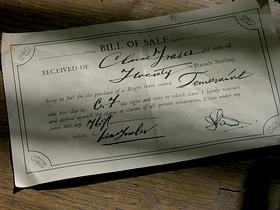 BILL OF SALE
RECEIVED OF Claire Fraser the sum of
Twenty Pounds Sterling
being in full for the purchase of a Negro slave named Temeraire
sold this day to C.F the right and title to which slave I hereby warrant
and defend against the claims of all persons whatsoever, Given under my
hand this day